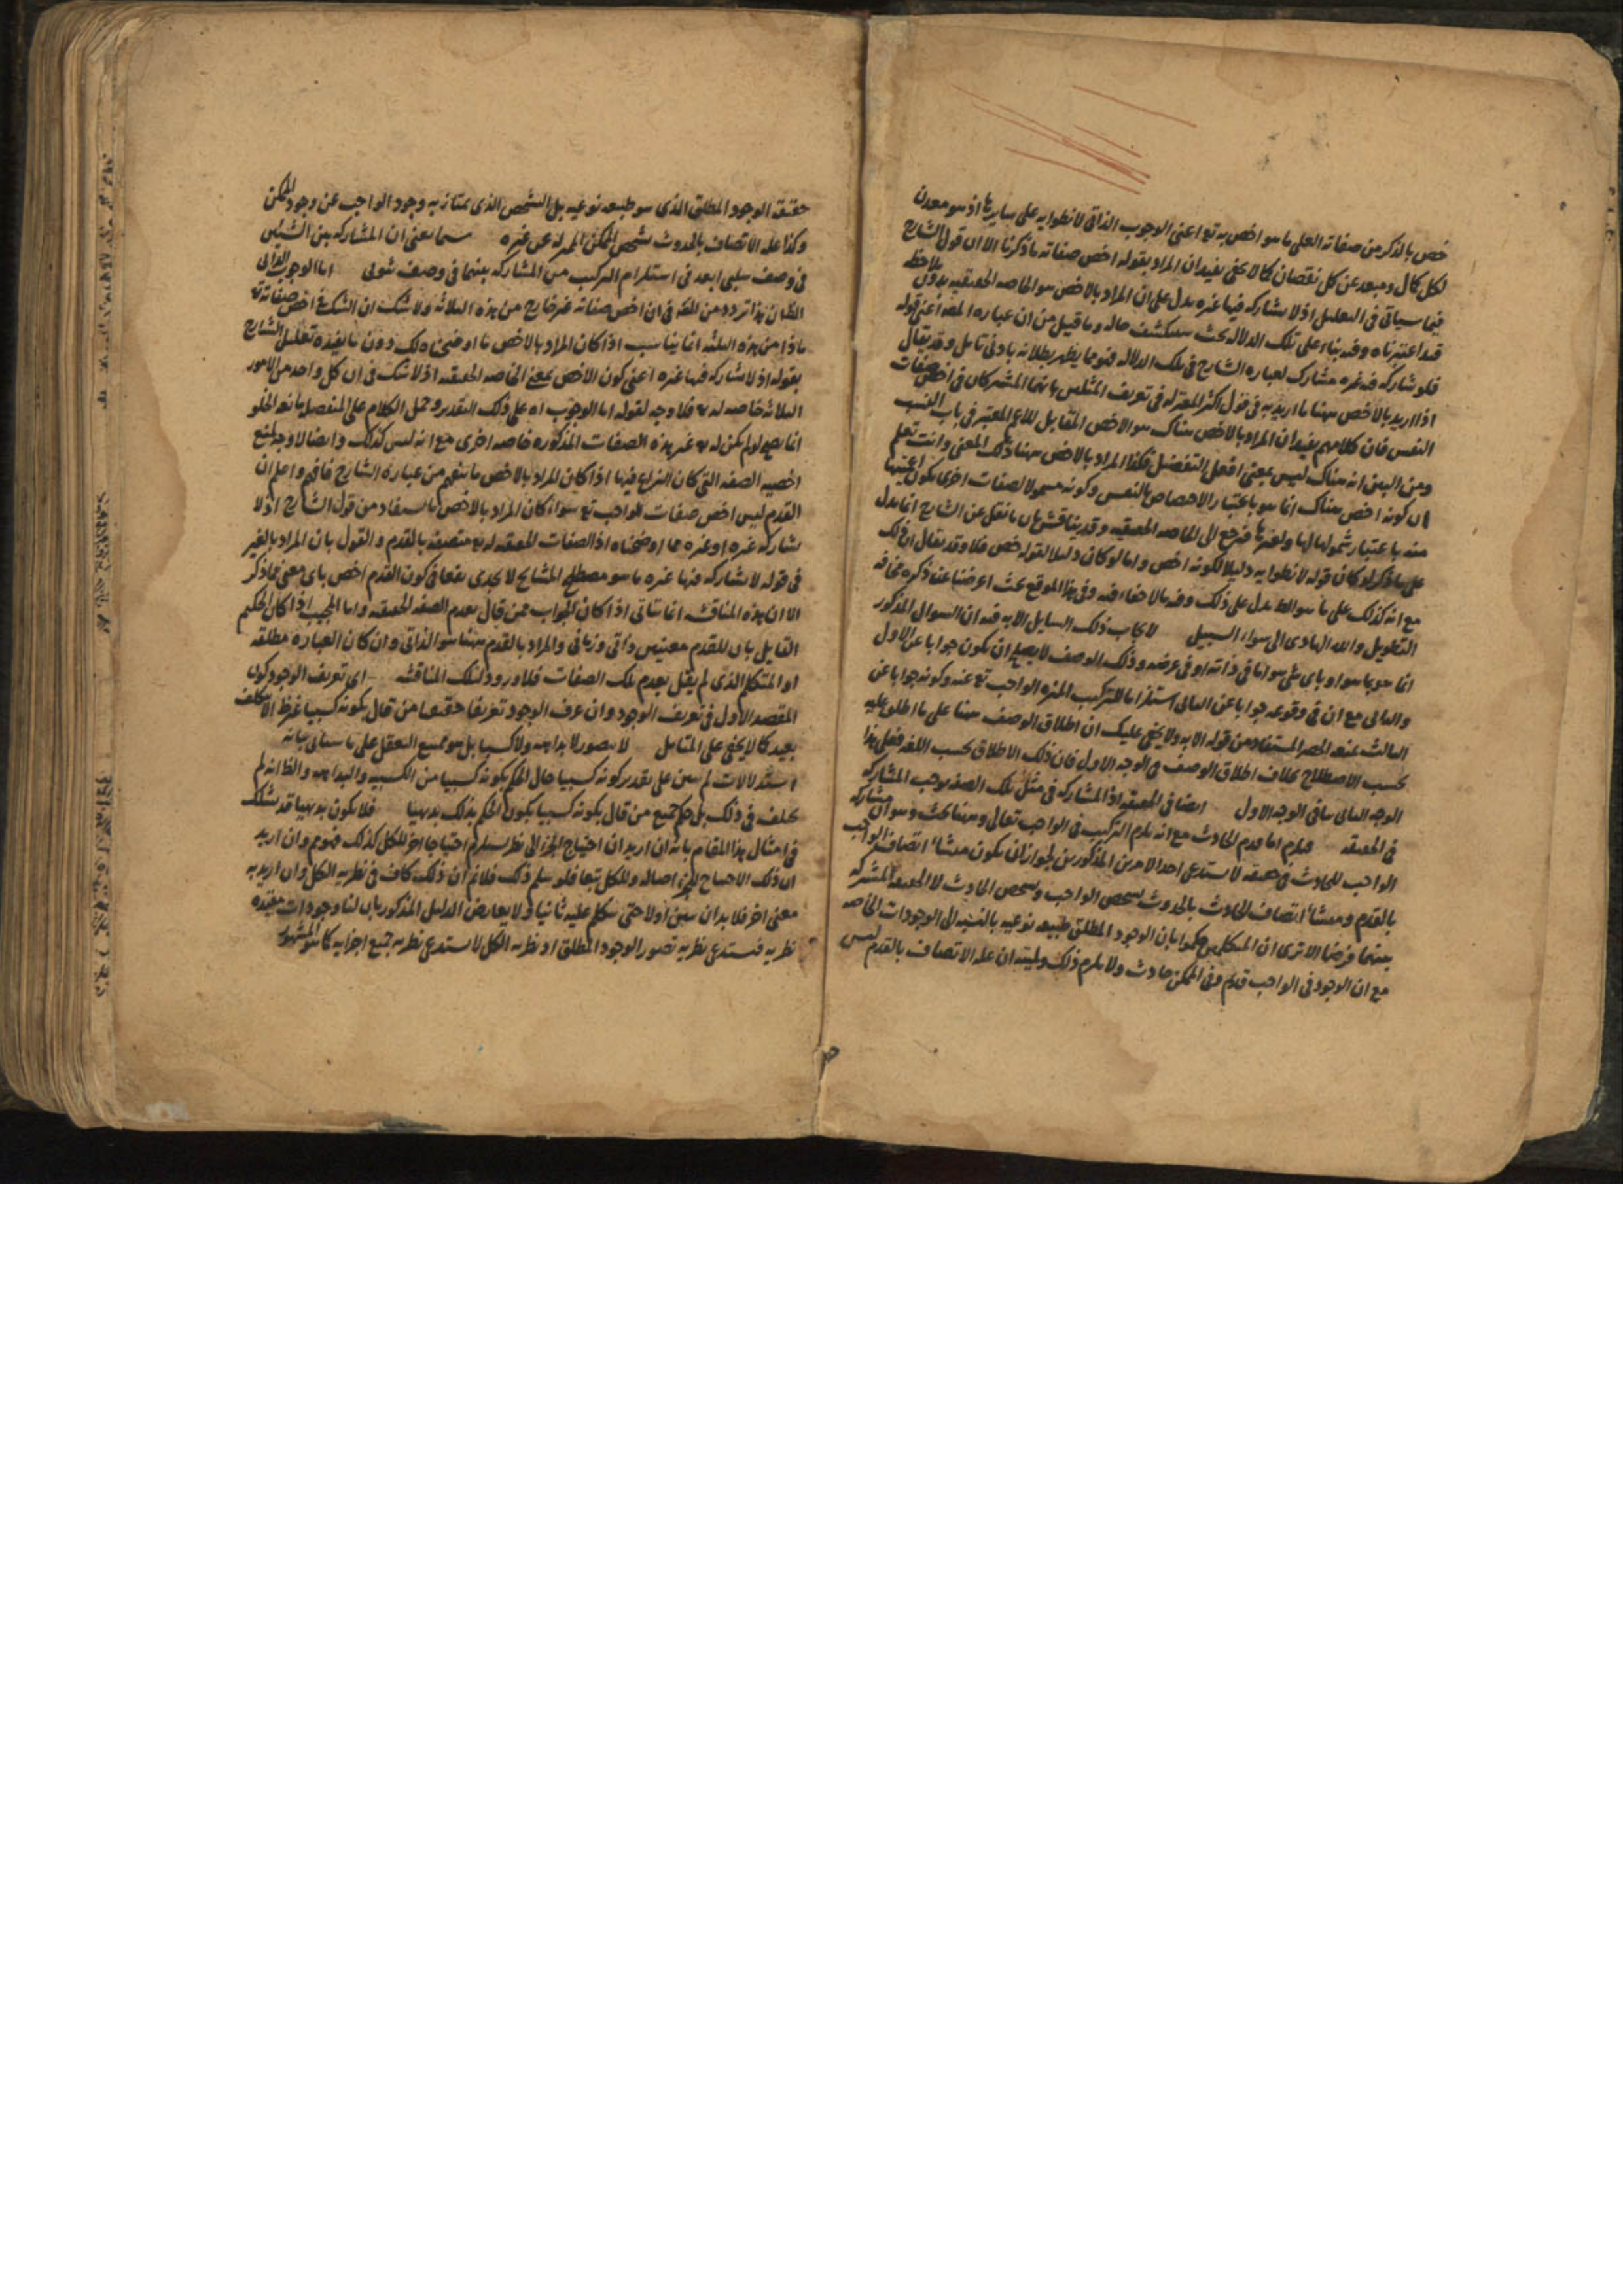 خص بالذكر من صفاته العلى ما هو اخص به تع اعنى الوجوب الذاتى لانطوايه على سايرها اذ هو معدن
لكل كمال ومبعد عن كل نقصان كما لا يخفى يفيد ان المراد بقوله اخص صفاته ما ذكرنا الا ان قول الشارح
فيما سياتى فى التعليل اذ لا يشاركه فيها غيره يدل على ان المراد بالاخص هو الخاصه الحقيقيه بدون ملاحظه
قيد اعتبرناه وفيه بناء على تلك الدلالة بحث سنكشف حاله وما قيل من ان عباره المص اعنى قوله
فلو شاركه فيه غيره مشارك لعباره الشارح فى تلك الدلاله فتوهم يظهر بطلانه بادنى تامل وقد يقال
اذا اريد بالاخص ههنا ما اريد به فى قول اكثر المعتزله فى تعريف المثلين بانهما المشتركان فى اخص صفات
النفس فان كلامهم يفيد ان المراد بالاخص هناك هو الاخص المقابل للاعم المعتبر فى باب النسب
ومن البين انه هناك ليس بمعنى افعل التفضيل فكذا المراد بالاخص ههنا ذلك المعنى وانت تعلم
ان كونه اخص هناك انما هو باعتبار الاختصاص بالنفس وكونه مسمولا لصفات اخرى يكون اعميتها
منه باعتبار شمولها لها ولغيرها فيرجع الى الخاصه الحقيقيه وقد يناقش بان ما نقل عن الشارح انما يدل
على ما ذكر لو كان قوله لانطوايه دليلا لكونه اخص واما لو كان دليلا لقوله خص فلا وقد يقال ان ذلك
مع انه كذلك على ما هو الظ يدل على ذلك وفيه ما لا خفاء فيه وفى هذا الموقع بحث اعرضنا عن ذكره مخافه
التطويل والله الهادى الى سواء السبيل لا يجاب ذلك السايل الا به فيه ان السوال المذكور
انما هو بما هو او باى شى هو اما فى ذاته او فى عرضه وذلك الوصف لا يصلح ان يكون جوابا عن الاول
والثانى مع ان فى وقوعه جوابا عن الثانى استلزاما للتركيب المنزه الواجب تع عنه وكونه جوابا عن
الثالث يمنعه الحصر المستفاد من قوله الا به ولا يخفى عليك ان اطلاق الوصف ههنا على ما اطلق عليه
بحسب الاصطلاح بخلاف اطلاق الوصف فى الوجه الاول فان ذلك الاطلاق بحسب اللغه فعلى هذا
الوجه الثانى ينافى الوجه الاول ايضا فى الحقيقه اذ المشاركه فى مثل تلك الصفه يوجب المشاركه
فى الحقيقه فيلزم اما قدم الحادث مع انه يلزم التركيب فى الواجب تعالى وههنا بحث وهو ان مشاركه
الواجب للحادث فى حقيقه لا يستدعى احد الامرين المذكورين لجواز ان يكون منشاء اتصاف الواجب
بالقدم ومنشاء اتصاف الحادث بالحدوث تشخص الواجب وتشخص الحادث لا الحقيقه المشتركه
بينهما فرضا الا ترى ان المتكلمين حكموا بان الوجود المطلق طبيعه نوعيه بالنسبه الى الوجودات الخاصه
مع ان الوجود فى الواجب قديم وفى الممكن حادث ولا يلزم ذلك وليته ان علة الاتصاف بالقدم ليس
حقيقة الوجود المطلق الذى هو طبيعه نوعيه بل التشخص الذى يمتاز به وجود الواجب عن وجود الممكن
وكذا علة الاتصاف بالحدوث تشخص الممكن المميز له عن غيره يعنى ان المشاركه بين الشيئين
فى وصف سلبى ابعد فى استلزام التركيب من المشاركه بينهما فى وصف ثبوتى اما الوجوب الذاتى
الظ ان هذا تردد من المص فى ان اخص صفاته غير خارج من هذه الثلاثه ولا شك ان الشك فى اخص صفاته تع
ماذا من هذه الثلثه انما يناسب اذا كان المراد بالاخص ما اوضحناه لك دون ما يفيده تعليل الشارح
بقوله اذ لا يشاركه فيها غيره اعنى كون الاخص بمعنى الخاصه الحقيقه اذ لا شك فى ان كل واحد من الامور
الثلاثه خاصه له تع فلا وجه لقوله اما الوجوب اه على ذلك التقدير وحمل الكلام على المنفصله مانعه الخلو
انما يصح لو لم يكن له تع غير هذه الصفات المذكوره خاصه اخرى مع انه ليس كذلك وايضا لا وجه لمنع
اخصيه الصفه التى كان النزاع فيها اذا كان المراد بالاخص ما يفهم من عباره الشارح فافهم واعلم ان
القدم ليس اخص صفات الواجب تع سواء كان المراد بالاخص ما يستفاد من قول الشارح اذ لا
يشاركه غيره او غيره مما اوضحناه اذ الصفات الحقيقه له تع متصفه بالقدم والقول بان المراد بالغير
فى قوله لا يشاركه فيها غيره ما هو مصطلح المشايخ لا يجدى نفعا فى كون القدم اخص باى معنى مما ذكر
الا ان هذه المناقشه انما تتاتى اذا كان الجواب ممن قال بعدم الصفه الحقيقه واما المجيب اذا كان الحكيم
القايل بان للقدم معنيين ذاتى وزمانى والمراد بالقدم ههنا هو الذاتى وان كان العباره مطلقه
او المتكلم الذى لم يقل بقدم تلك الصفات فلا ورود لتلك المناقشه اى تعريف الوجود كون
المقصد الاول فى تعريف الوجود وان عرف الوجود تعريفا حقيقيا من قال بكونه كسبيا غرظ الا بتكلف
بعيد كما لا يخفى على المتامل لا يتصور لا بداهه ولا كسبا بل هو ممتنع التعقل على ما سياتى بيانه
استدلالات لم يبين على تقدير كونه كسبيا حال الحكم بكونه كسبيا من الكسبيه والبداهه والظ انه لم
يختلف فى ذلك بل حكم جميع من قال بكونه كسبيا بكون الحكم بذلك بديهيا فلا يكون بديهيا قد يشكك
فى امثال هذا المقام بانه ان اريد ان احتياج الجزء الى نظر يستلزم احتياجا اخر للكل كذلك فممنوع وان اريد
ان ذلك الاحتياج للجزء اصاله وللكل تبعا فلو سلم ذلك فلا نم ان ذلك كاف فى نظرية الكل وان اريد به
معنى اخر فلا بد ان يبين اولا حتى يتكلم عليه ثانيا ولا يعارض الدليل المذكور بان لنا وجودات مقيده
نظريه فيستدعى نظرية تصور الوجود المطلق اذ نظرية الكل لا يستدعى نظرية جميع اجزايه كما هو المشهور